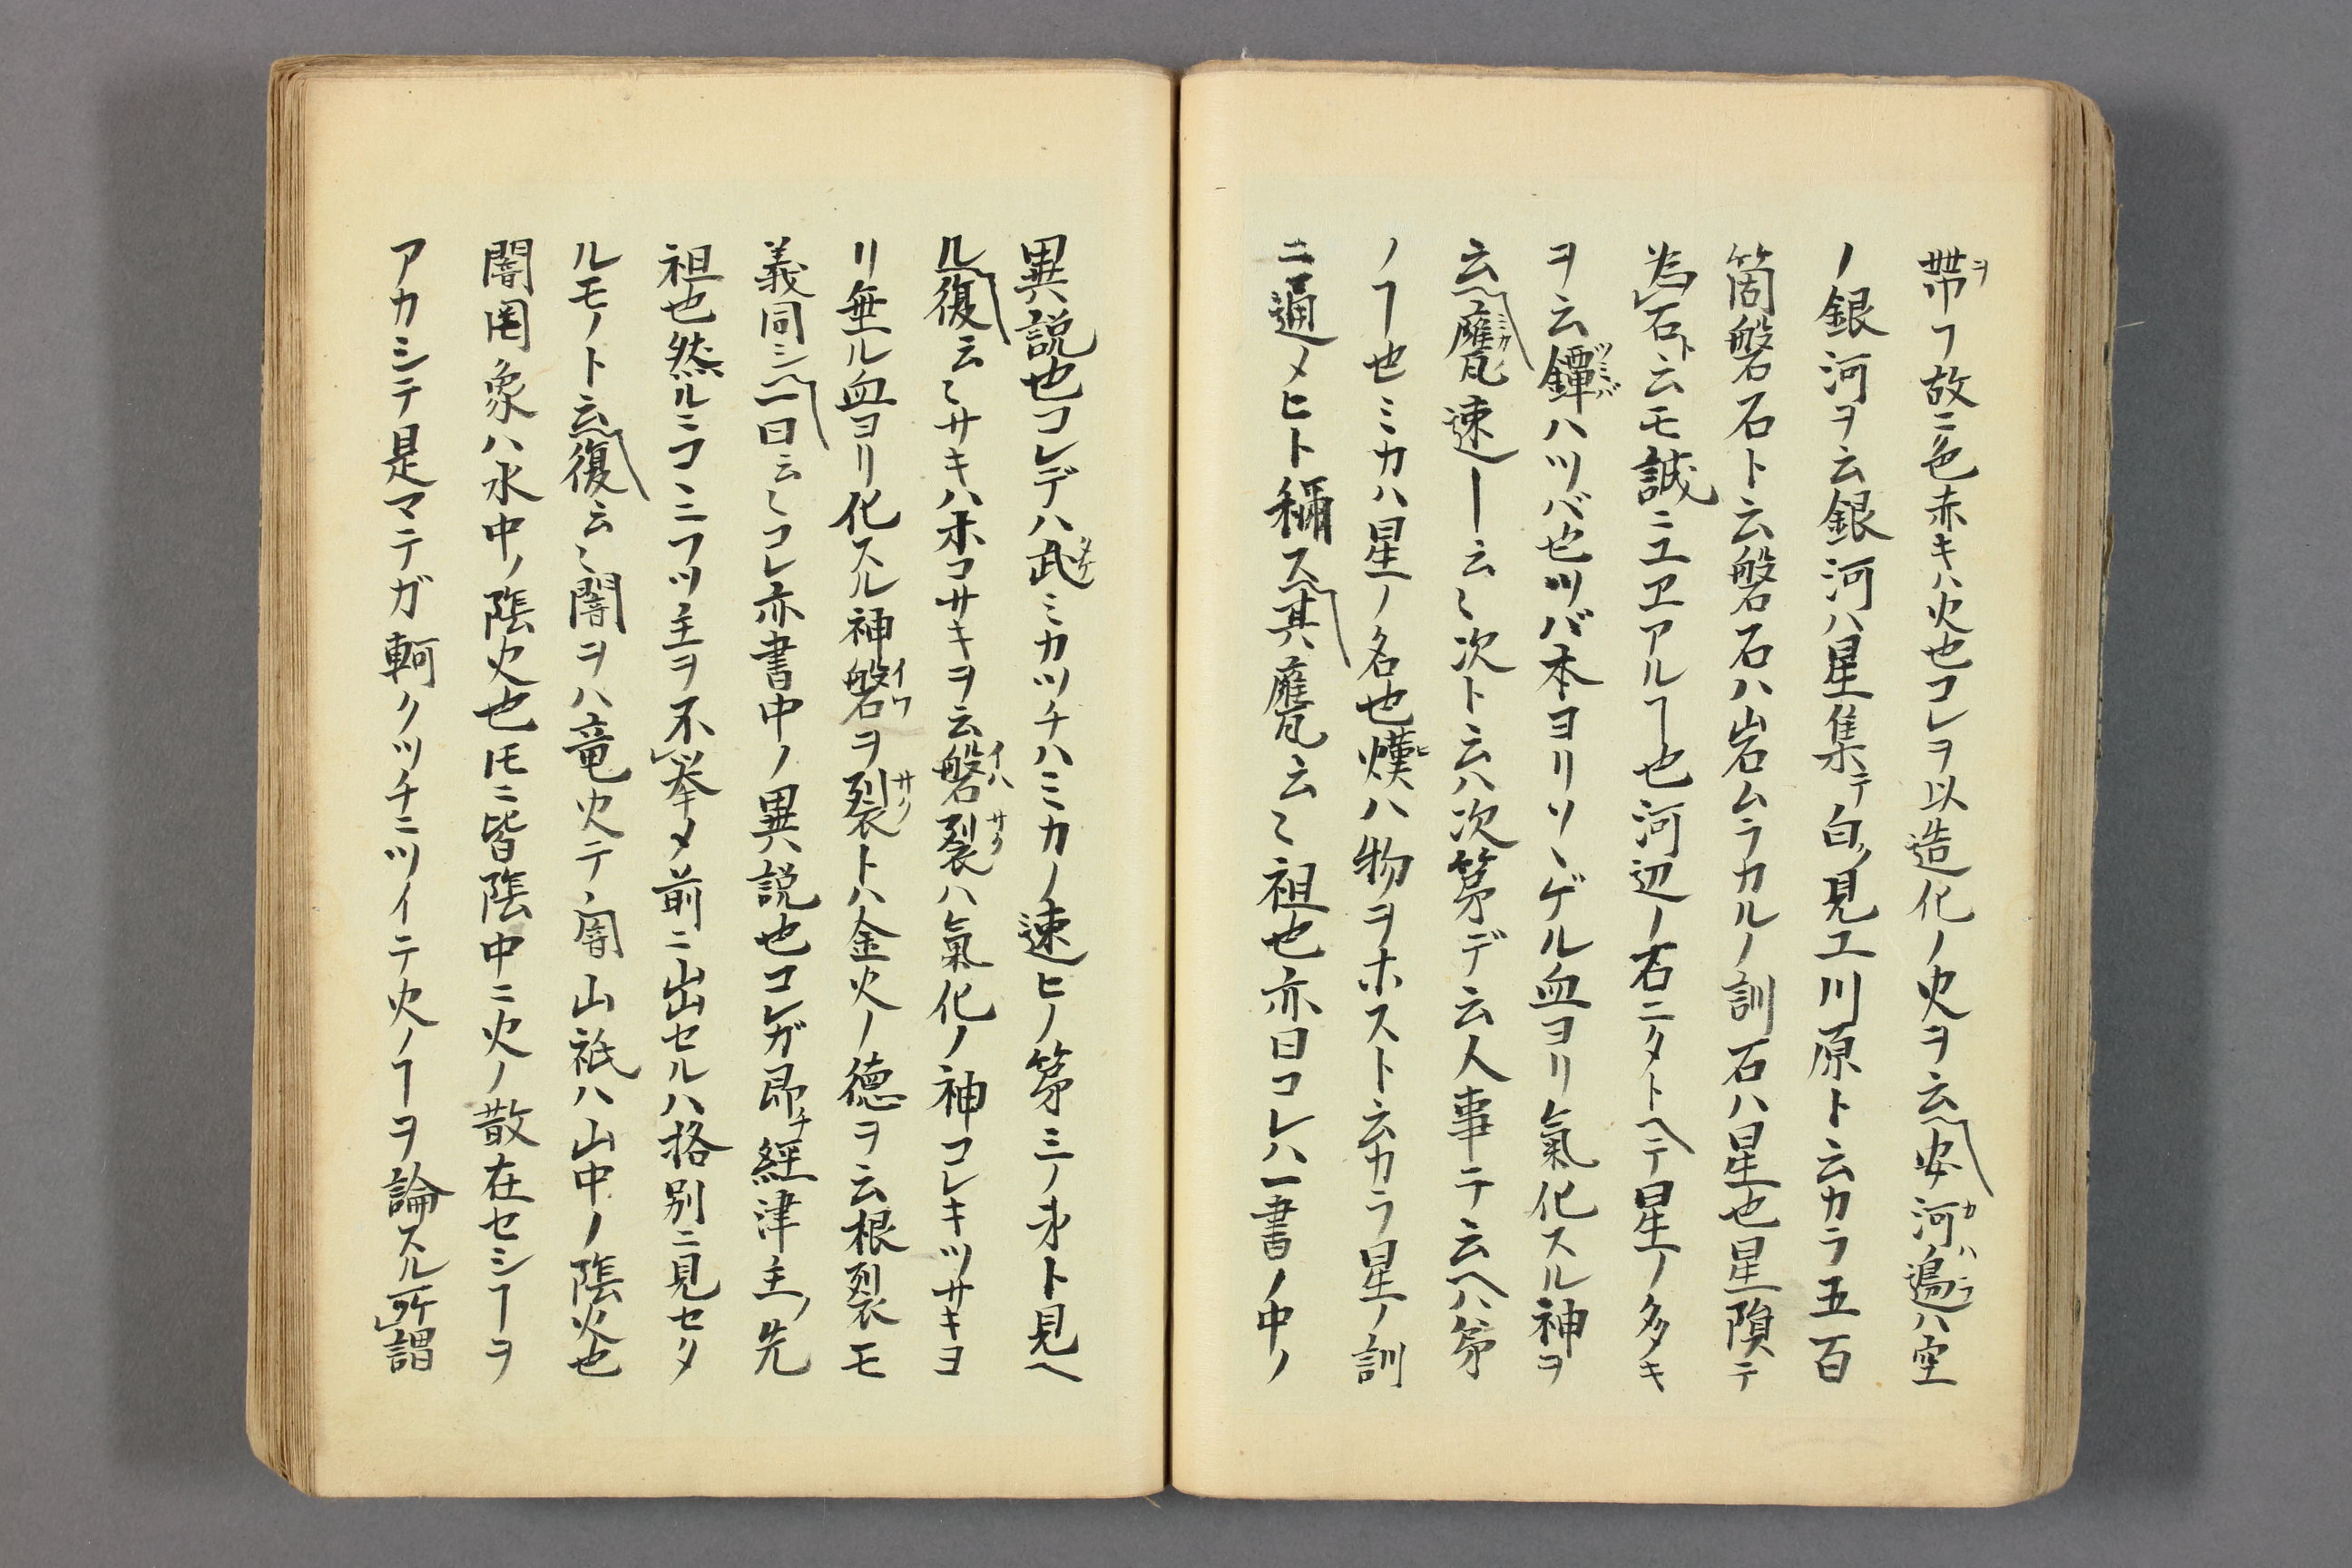 帯フ故ニ色赤キハ火也コレヲ以造化ノ火ヲ云安河邉ハ空
ノ銀河ヲ云銀河ハ星集テ白ク見エ川原ト云カラ五百
箇磐石ト云磐石ハ岩ムラカルノ訓石ハ星也星隕テ
為石ト云モ誠ニユヱアルヿ也河辺ノ石ニタトヘテ星ノ多キ
ヲ云鐔ハツバ也ツバ本ヨリソヽゲル血ヨリ氣化スル神ヲ
云甕速ー云〻次ト云ハ次第デ云人事テ云ヘハ第
ノヿ也ミカハ星ノ名也熯ハ物ヲホスト云カラ星ノ訓
ニ通メヒト稱ス其甕云〻祖也亦曰コレハ一書ノ中ノ
異説也コレデハ武ミカツチハミカノ速ヒノ第三ノ弟ト見ヘ
ル復云〻サキハホコサキヲ云磐裂ハ氣化ノ神コレキツサキヨ
リ垂ル血ヨリ化スル神磐ヲ裂トハ金火ノ德ヲ云根裂モ
義同シ一曰云〻コレ亦書中ノ異説也コレガ即チ経津主ノ先
祖也然ルニコヽニフツ主ヲ不挙メ前ニ出セルハ格別ニ見セタ
ルモノト云復云〻闇ヲハ竜火テノ闇山祇ハ山中ノ陰火也
闇罔象ハ水中ノ陰火也𪜈ニ皆陰中ニ火ノ散在セシヿヲ
アカシテ是マテガ軻クツチニツイテ火ノヿヲ論スル所謂